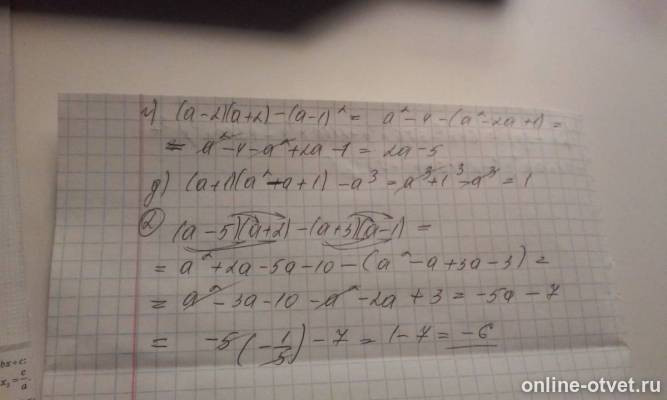 г) (a-2)(a+2)-(a-1)² = a²-4-(a²-2a+1) =
= a²-4-a²+2a-1 = 2a-5
д) (a+1)(a²-a+1)-a³ = a³+1³-a³ = 1
② (a-5)(a+2)-(a+3)(a-1) =
= a²+2a-5a-10-(a²-a+3a-3) =
= a²-3a-10-a²-2a+3 = -5a-7
= -5(-1/5)-7 = 1-7 = -6
bx+c:
x₁ = c/a.
online-otvet.ru